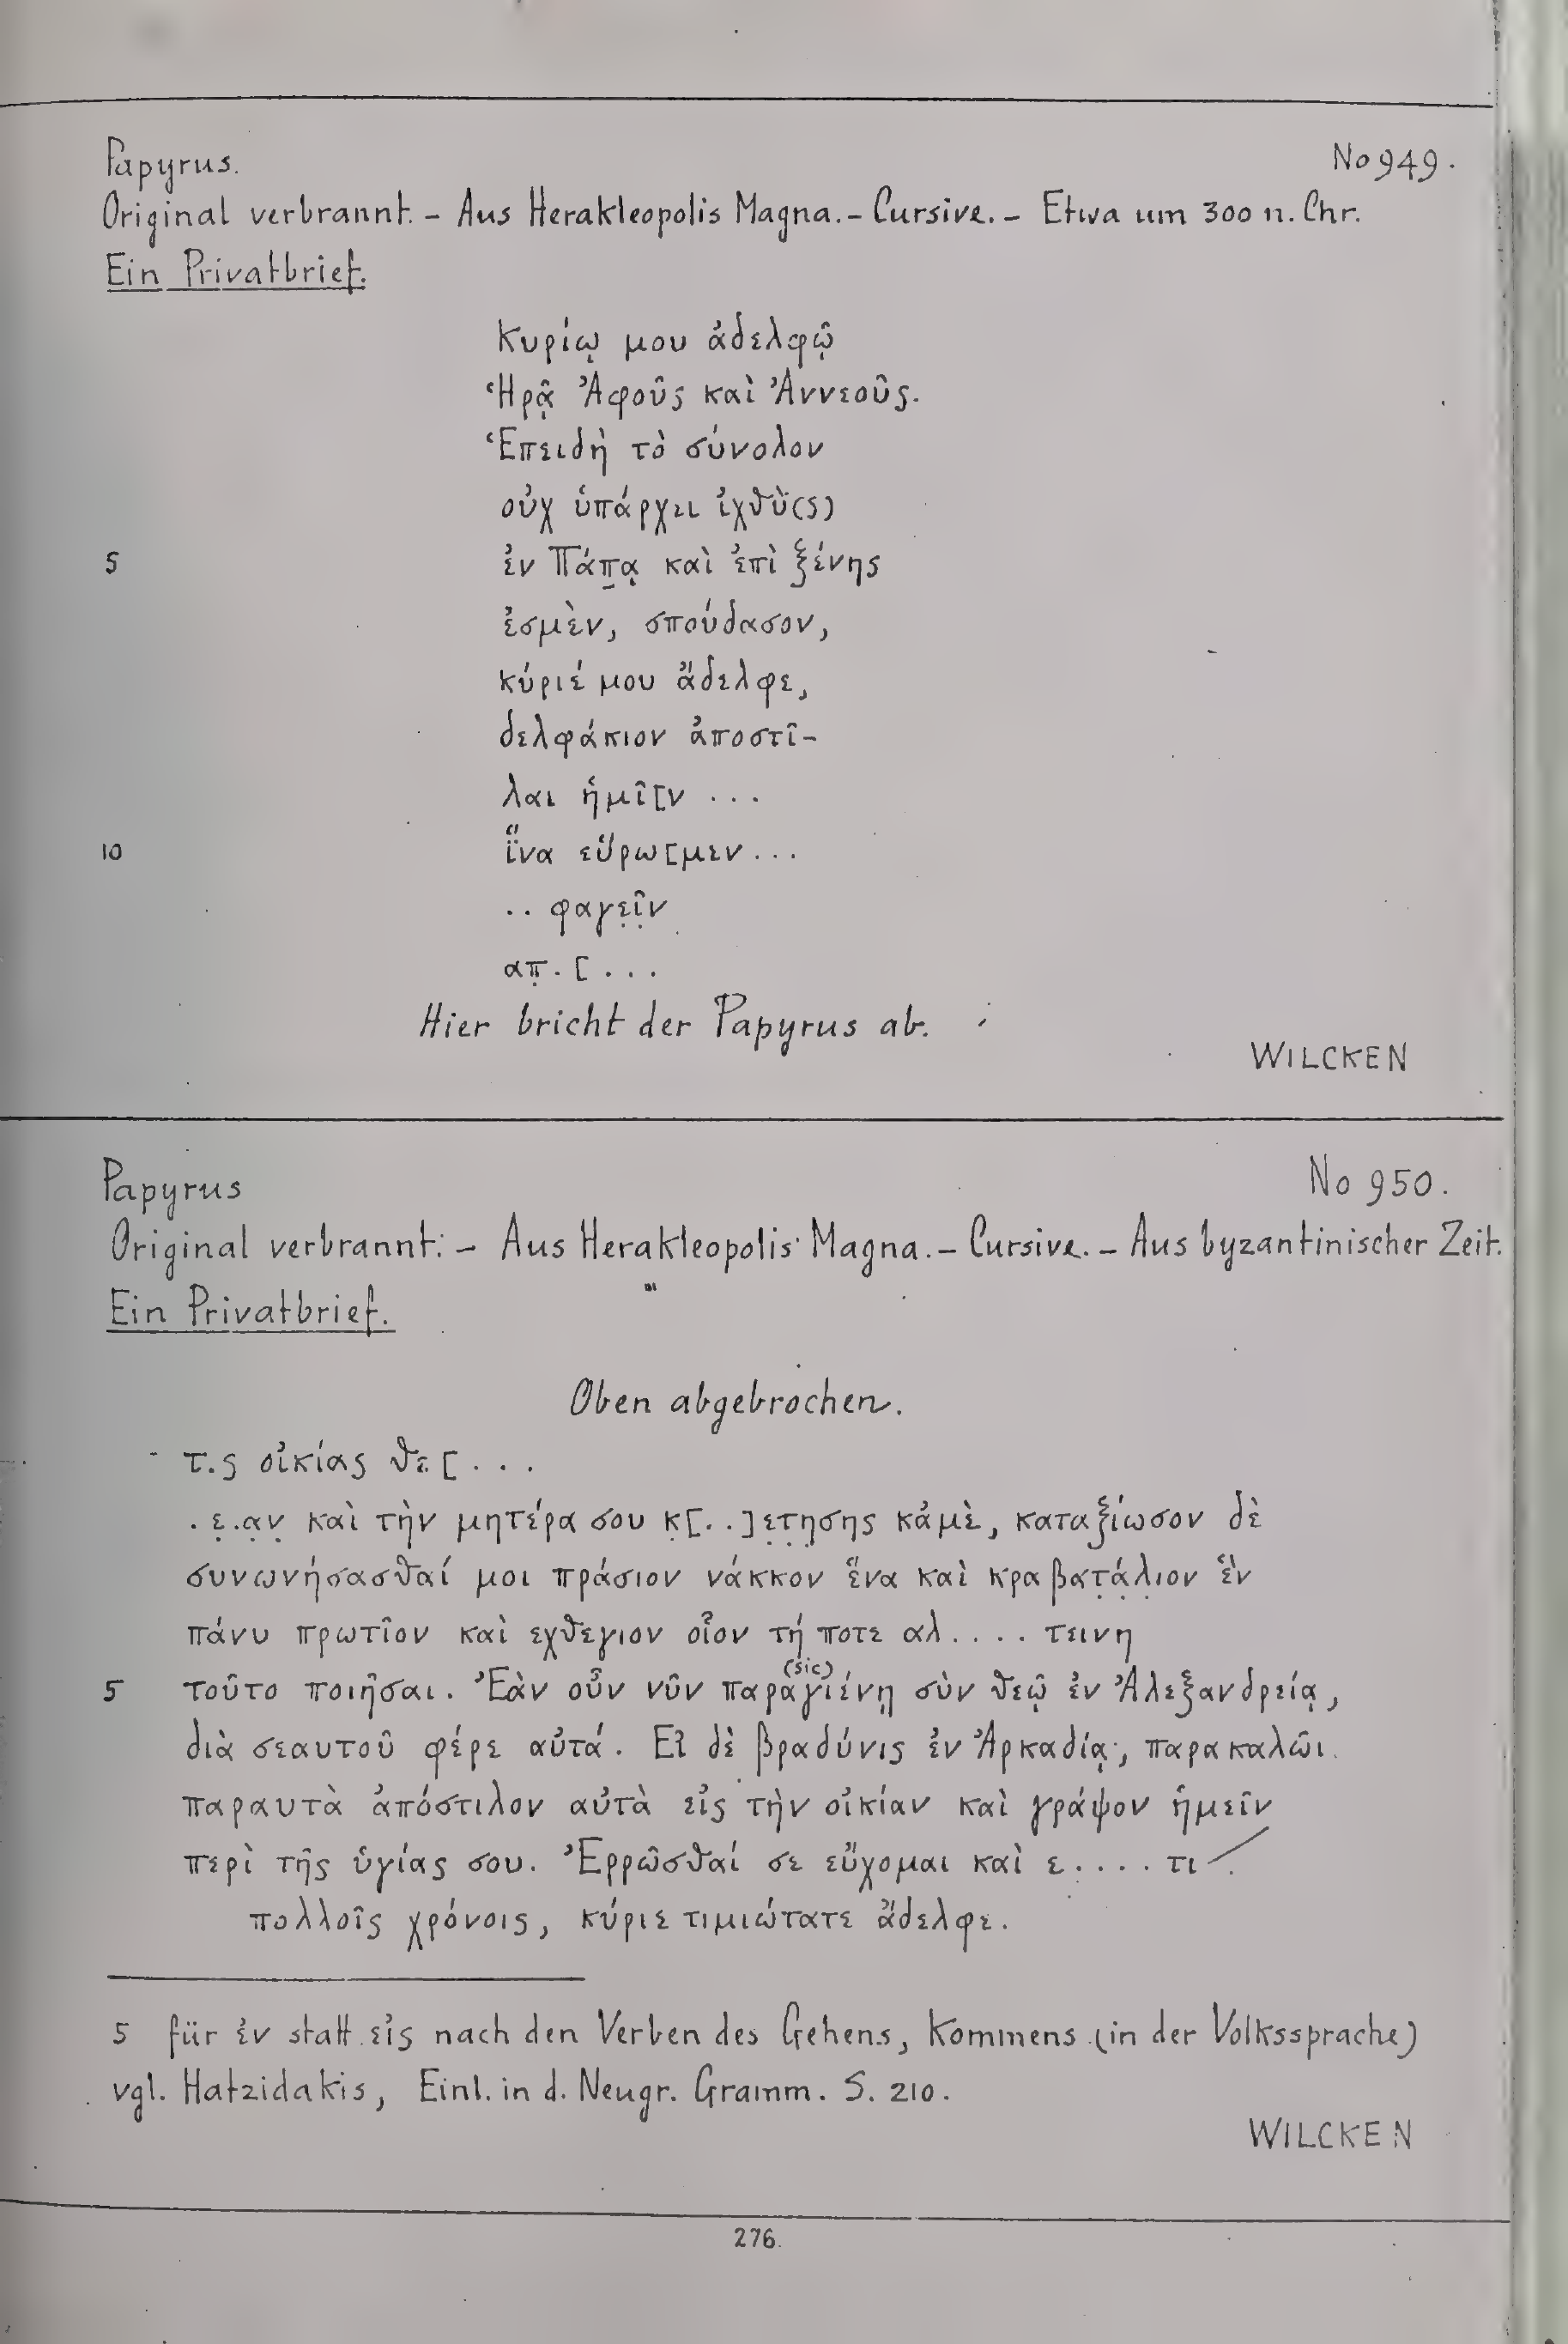 Papyrus. No 949.
Original verbrannt. – Aus Herakleopolis Magna. – Cursive. – Etwa um 300 n. Chr.
Ein Privatbrief.
Κυρίῳ μου ἀδελφῷ
Ἡρᾷ Ἀφοῦς καὶ Ἀννεοῦς.
Ἐπειδὴ τὸ σύνολον
οὐχ ὑπάρχει ἰχθὺ(ς)
5 ἐν Πάπ̣ᾳ καὶ ἐπὶ ξένης
ἐσμὲν, σπούδασον,
κύριέ μου ἄδελφε,
δελφάκιον ἀποστῖ-
λαι ἡμῖ[ν ...
10 ἵ̈να εὕρω[μεν ...
.. φαγε̣ῖ̣ν
απ̣. [ ...
Hier bricht der Papyrus ab.
WILCKEN
Papyrus No 950.
Original verbrannt. – Aus Herakleopolis Magna. – Cursive. – Aus byzantinischer Zeit.
Ein Privatbrief.
Oben abgebrochen.
τ.ς οἰκίας θε̣ [ ...
. ε̣ .α̣ν̣ καὶ τὴν μητέρα σου κ̣[..]ε̣τ̣η̣σης κἀμὲ, καταξίωσον δὲ
συνωνήσασθαί μοι πράσιον νάκκον ἕνα καὶ κραβατ̣ά̣λ̣ιον ἓν
πάνυ πρωτῖον καὶ εχθεγιον οἷον τή ποτε αλ .... τεινη
5 τοῦτο ποιῆσαι. Ἐὰν οὖν νῦν παραγιένῃ (sic) σὺν θεῷ ἐν Ἀλεξανδρείᾳ,
διὰ σεαυτοῦ φέρε αὐτά. Εἰ δὲ βραδύνις ἐν Ἀρκαδίᾳ, παρακαλῶι
παραυτὰ ἀπόστιλον αὐτὰ εἰς τὴν οἰκίαν καὶ γράψον ἡμεῖν
περὶ τῆς ὑγίας σου. Ἐρρῶσθαί σε εὔχομαι καὶ ε .... τι ⟋.
πολλοῖς χρόνοις, κύριε τιμιώτατε ἄδελφε.
5 für ἐν statt εἰς nach den Verben des Gehens, Kommens (in der Volkssprache)
vgl. Hatzidakis, Einl. in d. Neugr. Gramm. S. 210.
WILCKEN
276.